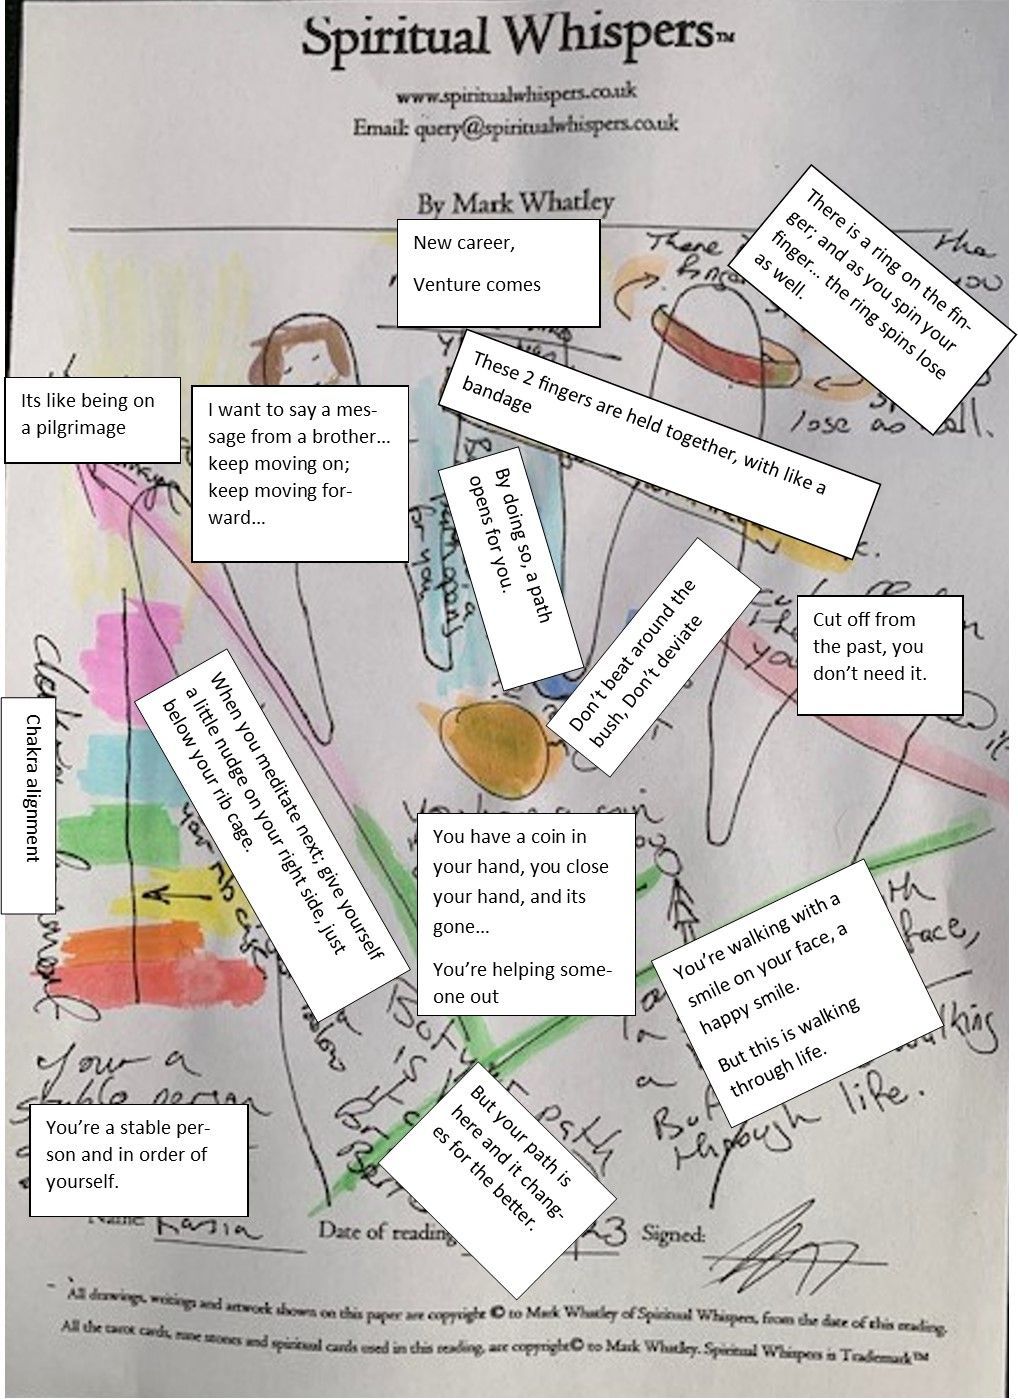 Spiritual Whispers™
www.spiritualwhispers.co.uk
Email: query@spiritualwhispers.co.uk
By Mark Whatley
New career,
Venture comes
There is a ring on the fin-
ger; and as you spin your
finger... the ring spins lose
as well.
There
the
you
lose as
These 2 fingers are held together, with like a
bandage
Its like being on
a pilgrimage
I want to say a mes-
sage from a brother...
keep moving on;
keep moving for-
ward...
By doing so, a path
opens for you.
for you
Don't beat around the
bush, Don't deviate
Cut off from
the past, you
don't need it.
Chakra alignment
When you meditate next; give yourself
a little nudge on your right side, just
below your rib cage.
You have a coin
You have a coin in
your hand, you close
your hand, and its
gone...
You're helping some-
one out
You're walking with a
smile on your face, a
happy smile.
But this is walking
through life.
face,
walking
But
through life.
Your a
stable person
You're a stable per-
son and in order of
yourself.
path
But your path is
here and it chang-
es for the better.
Name: Kasia Date of reading 23 Signed:
All drawings, writings and artwork shown on this paper are copyright © to Mark Whatley of Spiritual Whispers, from the date of this reading.
All the tarot cards, rune stones and spiritual cards used in this reading, are copyright© to Mark Whatley. Spiritual Whispers is Trademark™